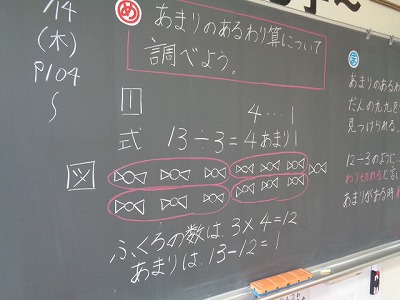 7/14
(木)
P104
〜
め
あまりのあるわり算について
調べよう。
1
4…1
式 13÷3=4あまり1
図
ふくろの数は、3×4=12
あまりは、13-12=1
あまりのある
だんの九九を
見つけられる。
12÷3のように
わり切れると言い
あまりがある時